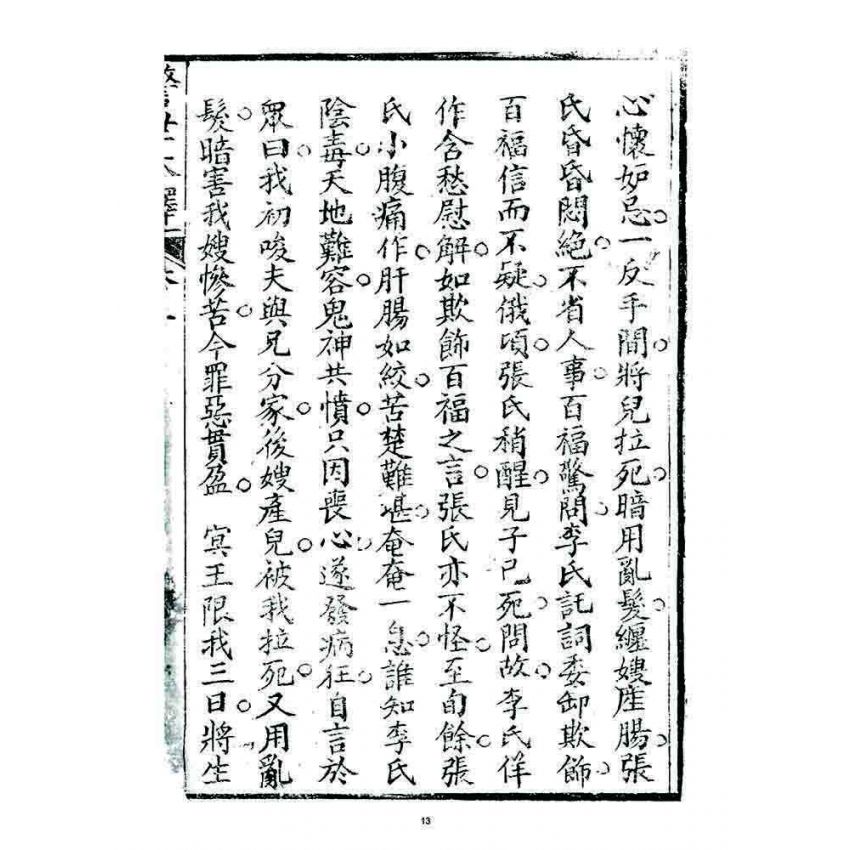 心懷妒忌一反手間將兒拉死暗用亂髮纏嫂産腸張
氏昏昏悶絕不省人事百福驚問李氏託詞委卸欺飾
百福信而不疑俄頃張氏稍醒見子已死問故李氏佯
作含愁慰解如欺飾百福之言張氏亦不怪至旬餘張
氏小腹痛作肝腸如絞苦楚難堪奄奄一息誰知李氏
陰毒天地難容鬼神共憤只因喪心遂發病狂自言於
眾曰我初唆夫與兄分家後嫂產兒被我拉死又用亂
髮暗害我嫂慘苦今罪惡貫盈 冥王限我三日將生
13